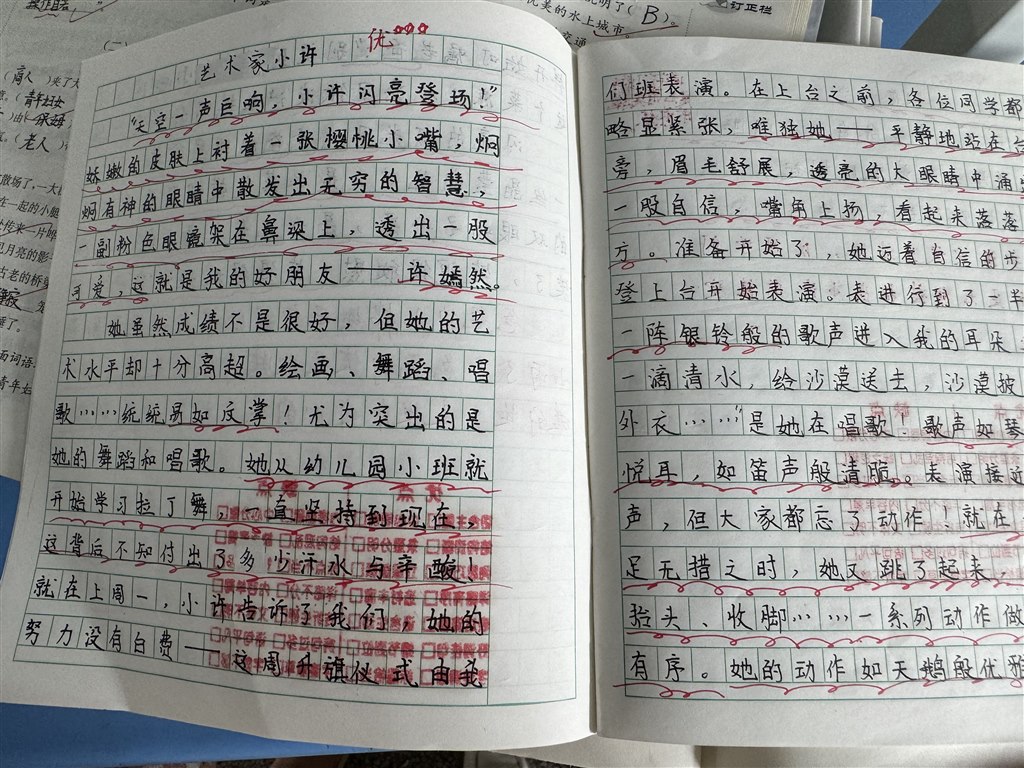 优
艺术家小许
"天空一声巨响,小许闪亮登场!"
娇嫩的皮肤上衬着一张樱桃小嘴,炯
炯有神的眼睛中散发出无穷的智慧,
一副粉色眼镜架在鼻梁上,透出一股
可爱,这就是我的好朋友——许嫣然。
她虽然成绩不是很好,但她的艺
术水平却十分高超。绘画、舞蹈、唱
歌……统统易如反掌!尤为突出的是
她的舞蹈和唱歌。她从幼儿园小班就
开始学习拉丁舞,一直坚持到现在,
这背后不知付出了多少汗水与辛酸!
就在上周一,小许告诉了我们,她的
努力没有白费——这周升旗仪式由我
们班表演。在上台之前,各位同学都
略显紧张,唯独她——平静地站在台
旁,眉毛舒展,透亮的大眼睛中涌
一股自信,嘴角上扬,看起来落落
方。准备开始了,她迈着自信的步
登上台开始表演。表进行到了一半
一阵银铃般的歌声进入我的耳朵
一滴清水,给沙漠送去,沙漠披
外衣……"是她在唱歌!歌声如琴
悦耳,如笛声般清脆。表演接近
声,但大家都忘了动作!就在
足无措之时,她又跳了起来,
抬头、收脚……一系列动作做
有序。她的动作如天鹅般优雅
优美的水上城市。
(B)。
钉正栏
交通
(商人)来了
(青年妇女
(老人)
散场了,一大
在一起的小艇
传来一片
月亮的影
古老的桥
青年妇